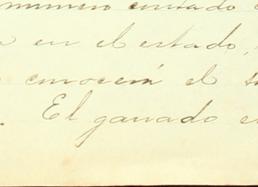 numero contado
en el estado,
conocerá el
El ganado e